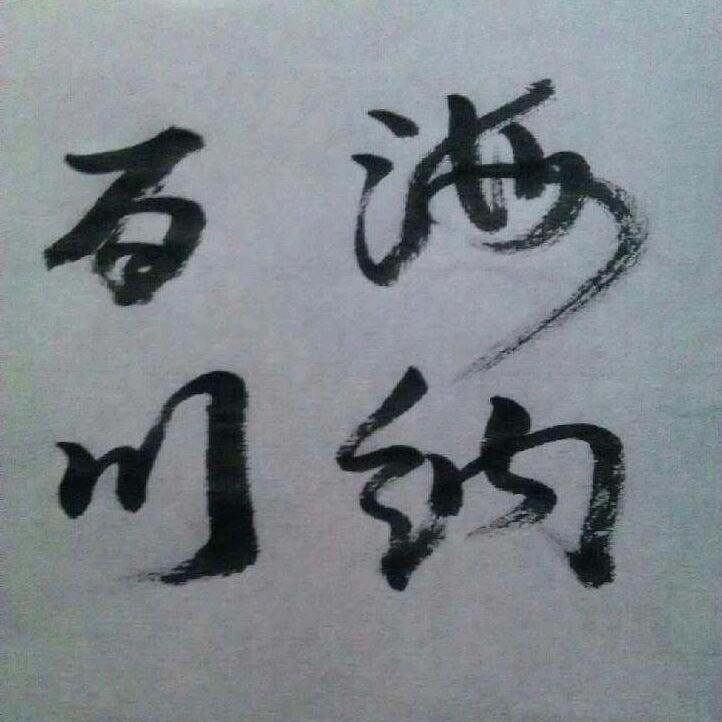 海纳
百川